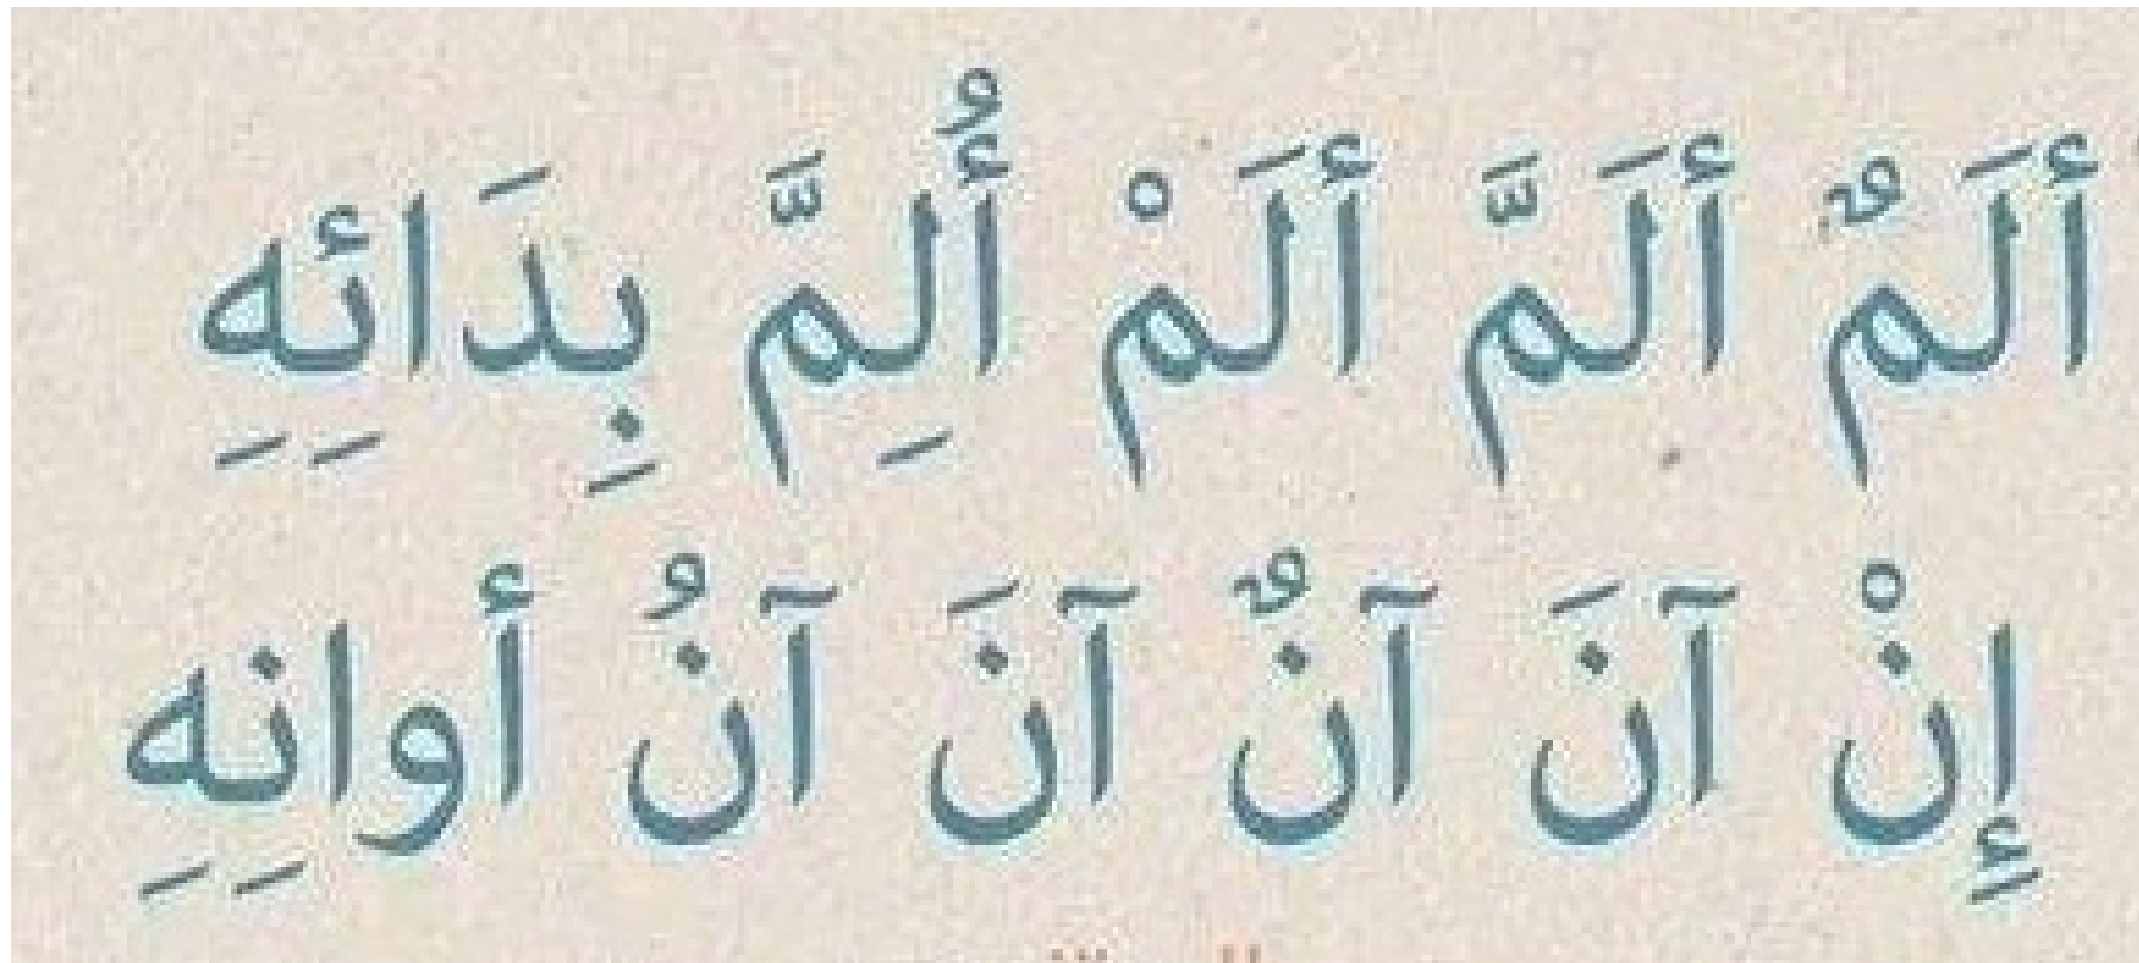 أَلَمٌ أَلَمَّ أَلَمْ أُلِمَّ بِدَائِهِ
إِنْ آنَ آنٌ آنَ آنُ أوانِهِ